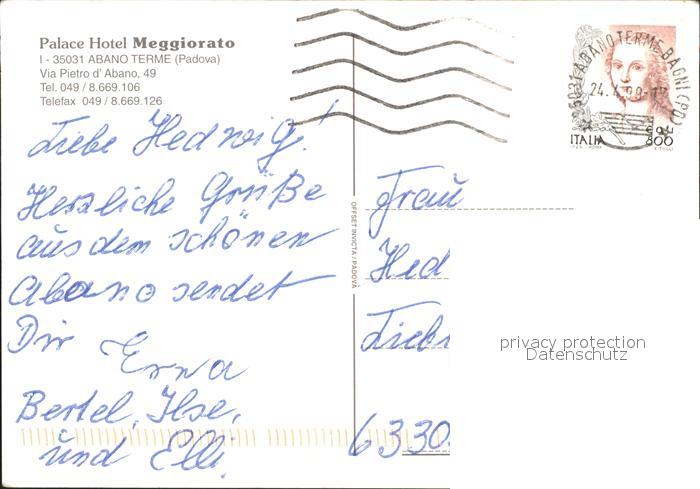 Palace Hotel Meggiorato
I - 35031 ABANO TERME (Padova)
Via Pietro d' Abano, 49
Tel. 049 / 8.669.106
Telefax 049 / 8.669.126
Liebe Hedwig!
Herzliche Grüße
aus dem schönen
Abano sendet
Dir Erna
Bertel, Ilse,
und Elli.
OFFSET INVICTA / PADOVA
35031 ABANO TERME BAGNI (PD)
24.4.98
ITALIA 800
Frau
Hed
6330
privacy protection
Datenschutz